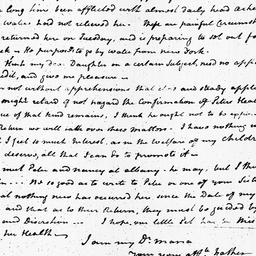 a long time been afflicted with almost daily head Ache
water had not relieved her. These are painful Circumst
returned here on Tuesday, and is preparing to set out for
k — He purposes to go by water from New York.
Thank my Dear Daughter on a certain subject need no apo
edit, and gives me pleasure —
not without apprehensions that clos and steady appli
might retard if not hazard the Confirmation of Peter's Healt
ue of that kind remains, I think he ought not to be
Return we will talk over these matters. I have nothing
I feel so much Interest, as in the welfare of my Childre
deserves, all that I can do to promote it —
met Peter and Nancy at albany. he may, but I th
in — . No so good as to write to Peter or one of your Siste
al nothing new has occurred here since the Date of my
and that as to their Return, they must be guided by
and Discretion — I hope, our little Pet has
her Health —
I am my Dr. Maria
Your very affte. Father